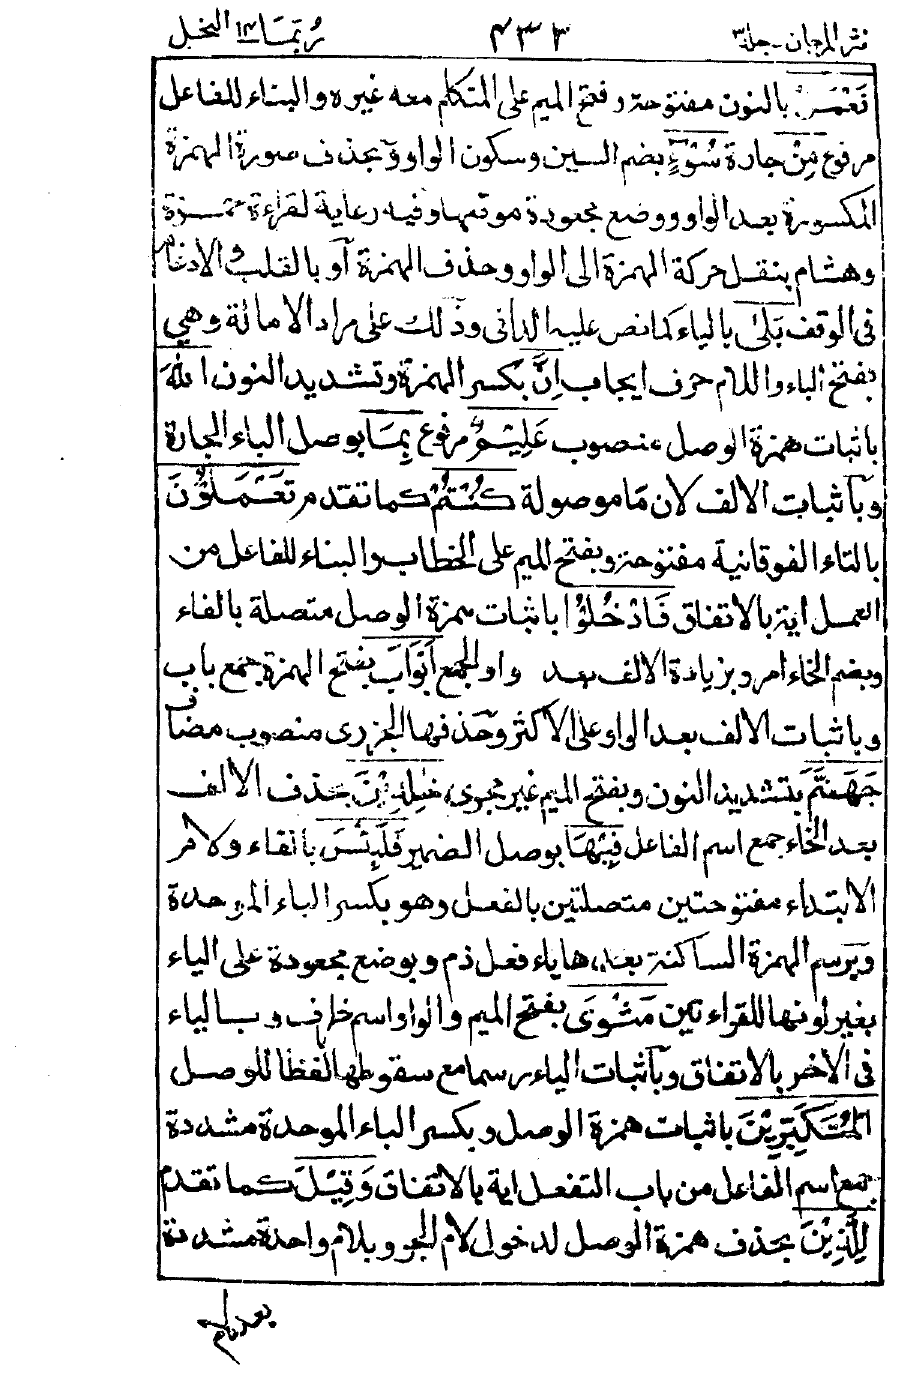 نثر المرجان ـ جلد ٣ ٤٣٣ ربما ١٤ النحل
نَعْمَلُ بالنون مفتوحة وفتح الميم على المتكلم معه غيره والبناء للفاعل
مرفوع مِنْ جارة سُوْۤءٍ بضم السين وسكون الواو وبحذف صورة الهمزة
المكسورة بعد الواو ووضع مجعودة موقعها وفيه رعاية لقراءة حمزة
وهشام بنقل حركة الهمزة الى الواو وحذف الهمزة أو بالقلب والادغام
فى الوقف بَلٰى بالياء كما نص عليه الدانى وذلك على مراد الامالة وهي
بفتح الباء واللام حرف ايجاب اِنَّ بكسر الهمزة وتشديد النون اللهَ
باثبات همزة الوصل منصوب عَلِيْمٌ مرفوع بِمَا بوصل الباء الجارة
وباثبات الالف لان مَا موصولة كُنْتُمْ كما تقدم تَعْمَلُوْنَ
بالتاء الفوقانية مفتوحة وبفتح الميم على الخطاب والبناء للفاعل من
العمل اية بالاتفاق فَادْخُلُوْا باثبات همزة الوصل متصلة بالفاء
وبضم الخاء امر وبزيادة الالف بعد واو الجمع اَبْوَابَ بفتح الهمزة جمع باب
وباثبات الالف بعد الواو على الاكثر وحذفها الجزرى منصوب مضاف
جَهَنَّمَ بتشديد النون وبفتح الميم غير مجرى خٰلِدِيْنَ بحذف الالف
بعد الخاء جمع اسم الفاعل فِيْهَا بوصل الضمير فَلَبِئْسَ بالفاء ولام
الابتداء مفتوحتين متصلتين بالفعل وهو بكسر الباء الموحدة
وبرسم الهمزة الساكنة بعدها ياء فعل ذم وبوضع مجعودة على الياء
بغير لونها للقراءتين مَثْوَى بفتح الميم والواو اسم ظرف وبالياء
فى الاخر بالاتفاق وباثبات الياء رسما مع سقوطها لفظا للوصل
الْمُتَكَبِّرِيْنَ باثبات همزة الوصل وبكسر الباء الموحدة مشددة
جمع اسم الفاعل من باب التفعل اية بالاتفاق وَقِيْلَ كما تقدم
لِلَّذِيْنَ بحذف همزة الوصل لدخول لام الجر وبلام واحدة مشددة
بعد لام